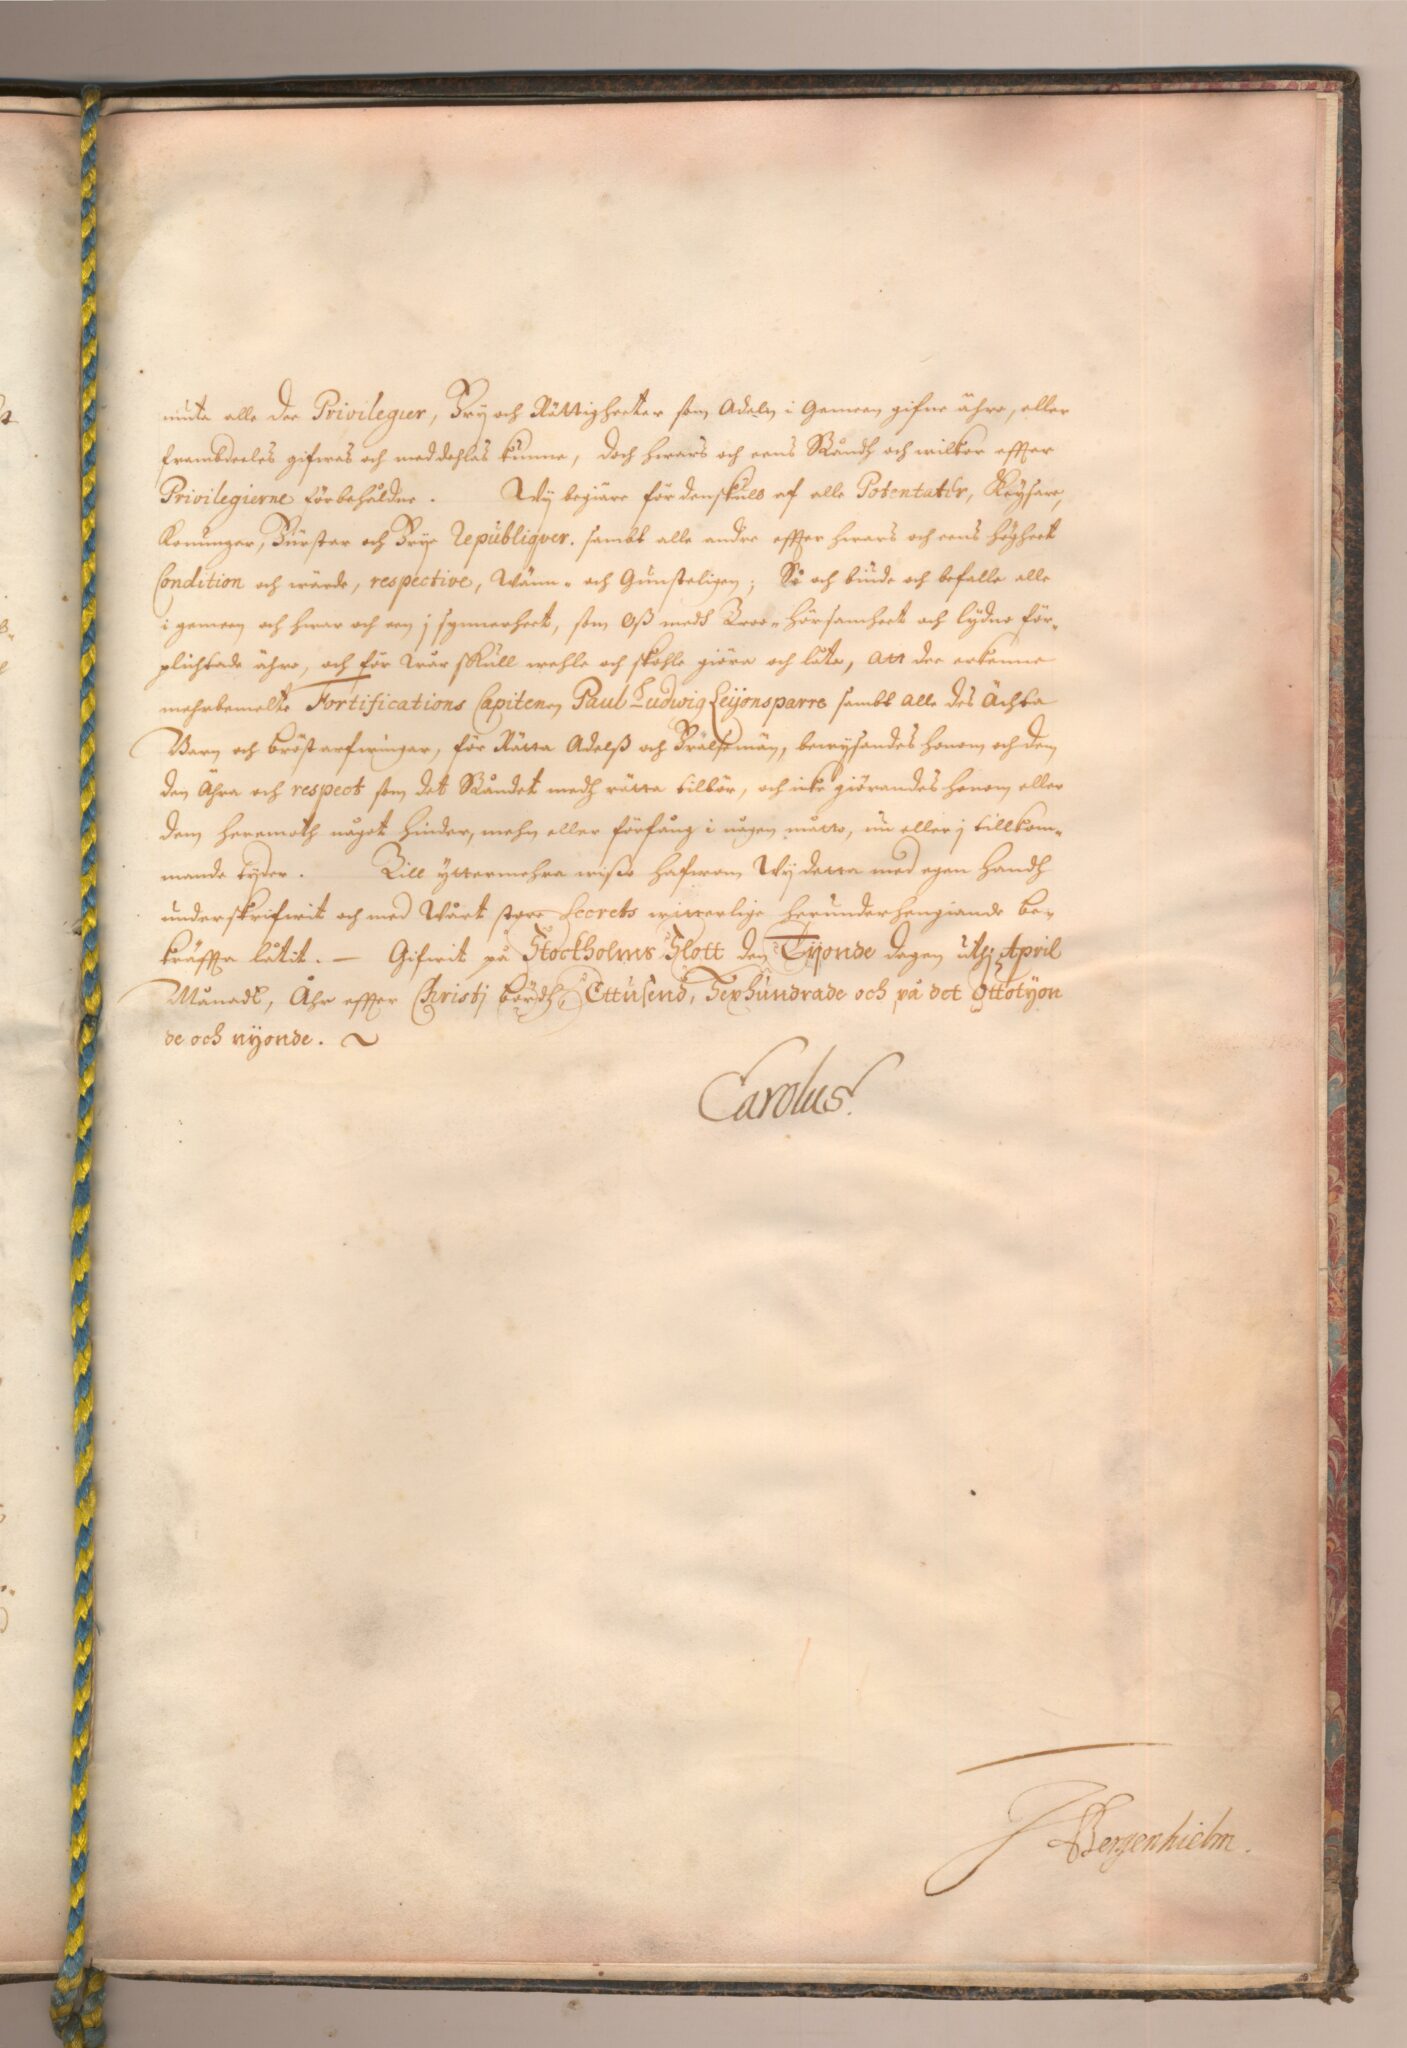 niuta alle dee Privilegier, Frij och Rättigheeter som Adeln i Gemeen gifne ähro, eller
frambdeeles gifwas och meddehlas kunne, doch hwars och eens Ståndh och wilkor effter
Privilegierne förbehåldne. Wij begiäre fördenskull af alle Potentater, Keysare,
Konungar, Fürstar och Frije Republiqver. sambt alle andre effter hwars och eens högheet
Condition och wärde, respective, Wänn- och Gunsteligen; Så och biude och befalle alle
i gemeen och hwar och een j synnerheet, som Oß medh Troo- Hörsamheet och lydno för-
plichtade ähro, och för Wår skull wehle och skohle giöra och låta, att dee erkenne
mehrbemelte Fortifications Capiteinen Paul Ludwig Leijonsparre sambt alle des Ächta
Barn och bröstarfwingar, för Rätta Adelß och Frälsemän, bewijsandes honom och dem
den Ähra och respect som det Ståndet medh rätta tilbör, och icke giörandes honom eller
dem heremoth något hinder, mehn eller förfång i någon måtto, nu eller j tillkom-
mande tyder. Till yttermehra wißo hafwom Wij detta med egen Handh
underskrifwit och med Wårt stoore Secrets witterlige herunderhengiande be-
kräffta låtit. — Gifwit på Stockholms Slott den Tijonde dagen uthj April
Månadt, Åhr effter Christj bördh, Ettusend, Sexhundrade och på det Ottotijon
de och nijonde.
Carolus.
J Bergenhielm.